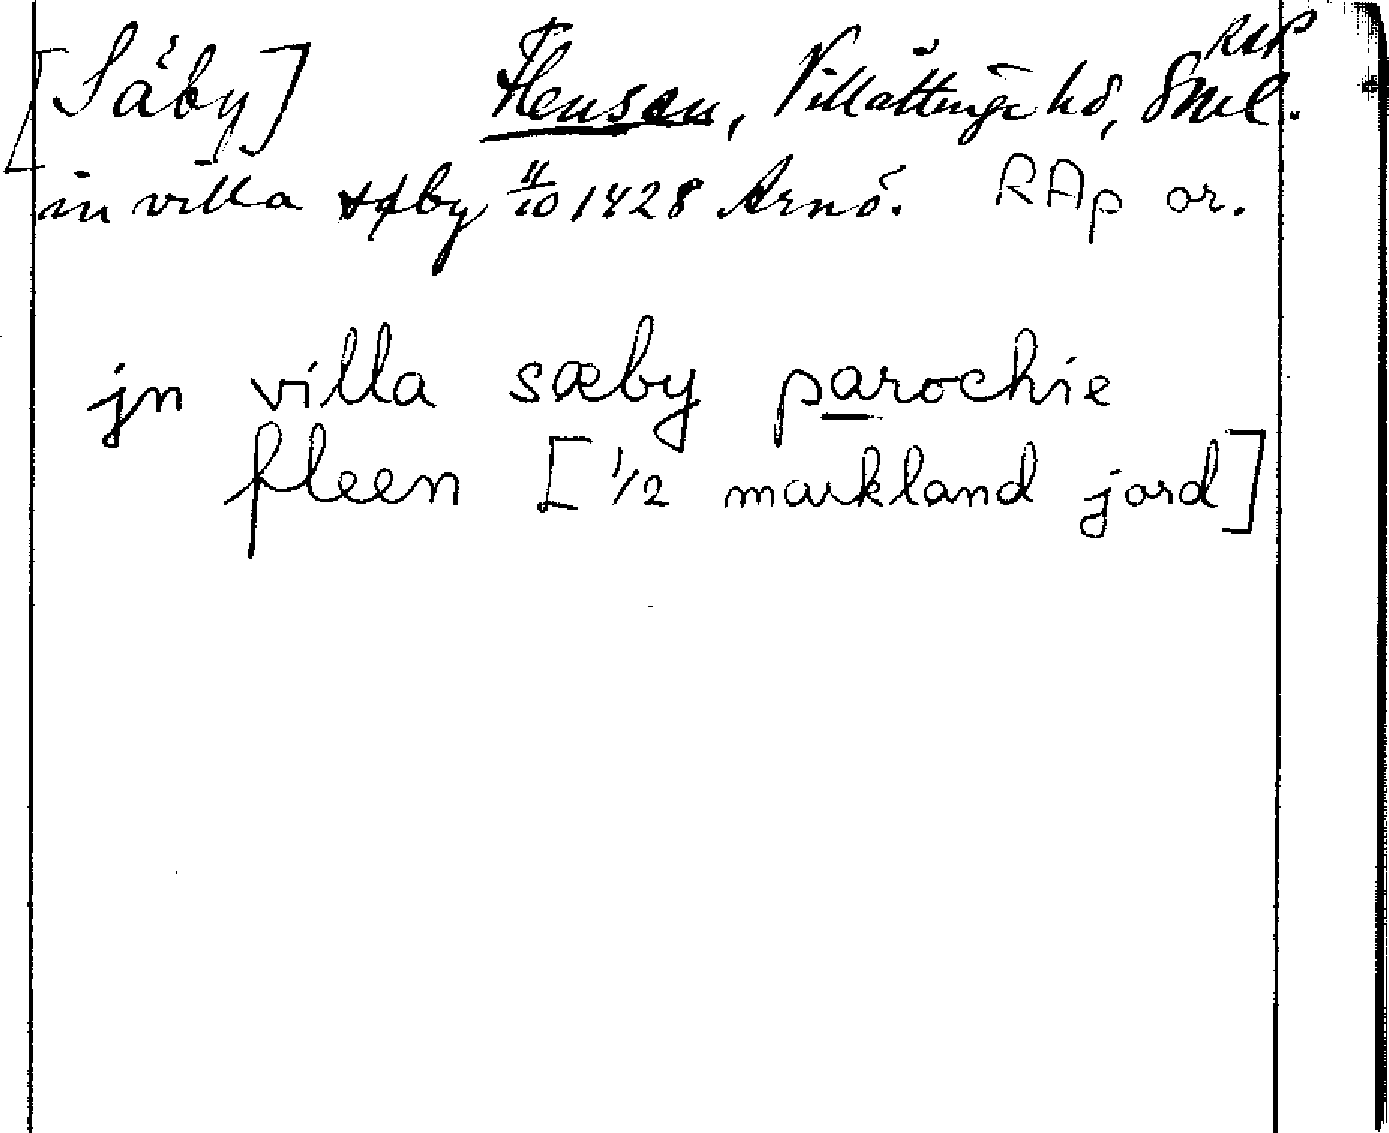 RAP
[Säby] Flensocken, Villåttinge hd, Sml.
in villa sæby 11/10 1428 Arnö. RAp or.
jn villa sæby parochie
fleen [1/2 markland jord]